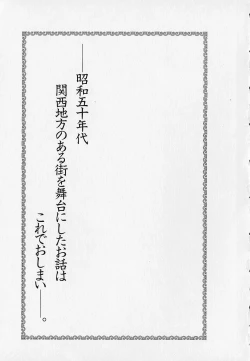 ――昭和五十年代
関西地方のある街を舞台にしたお話は
これでおしまい――。